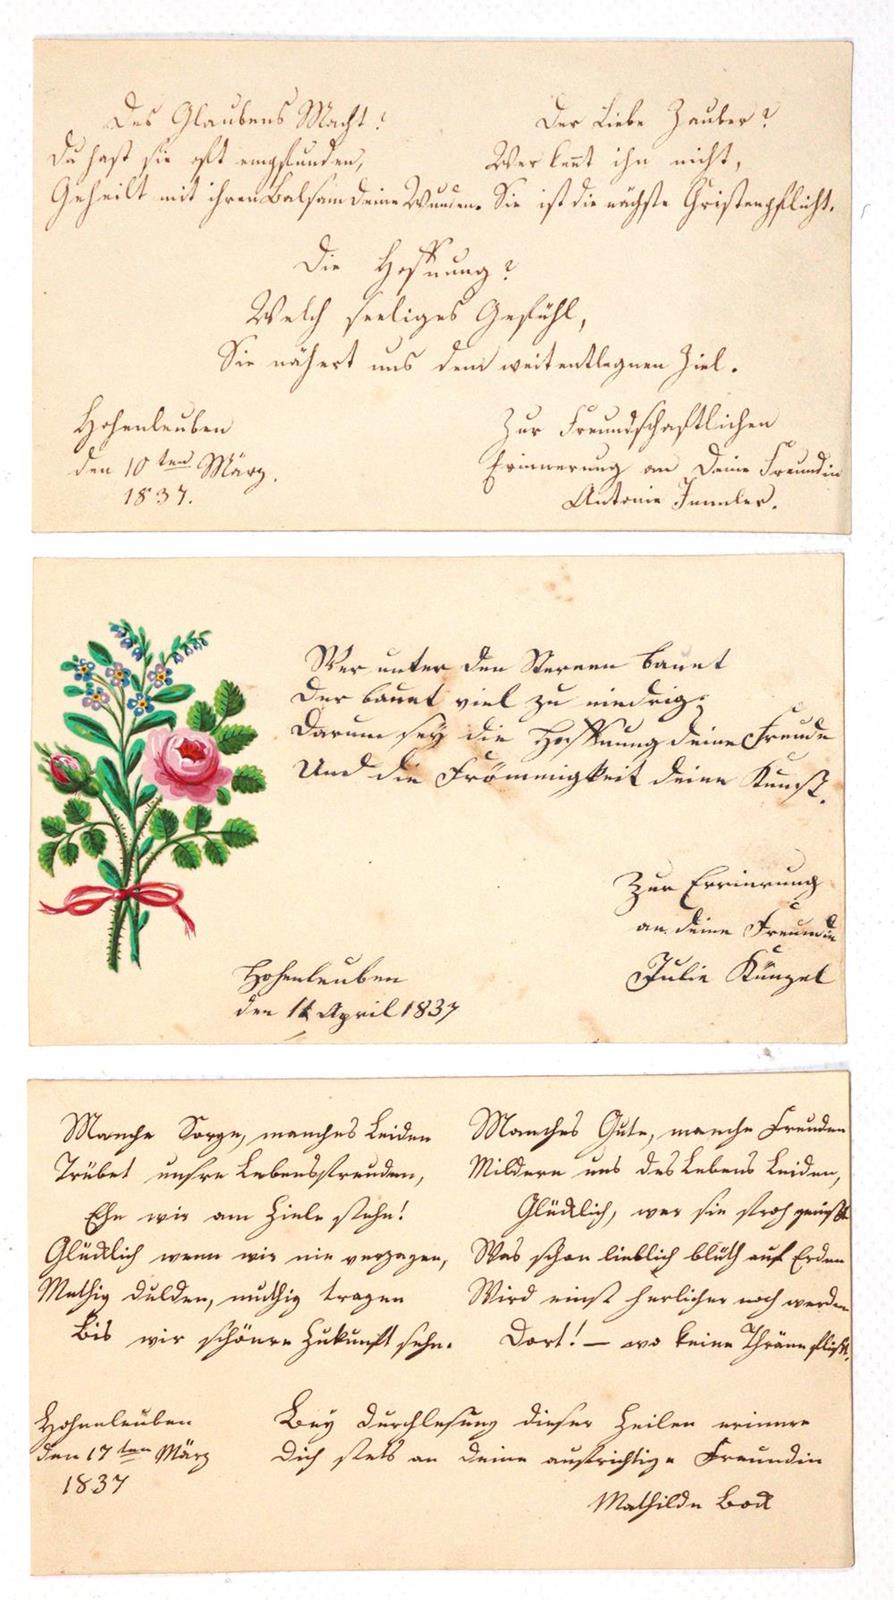 Des Glaubens Macht?
Du hast sie oft empfunden,
Geheilt mit ihren Balsam deine Wunden.
Der Liebe Zauber?
Wer keñt ihn nicht,
Sie ist die nächste Christenpflicht.
Die Hoffnung?
Welch seeliges Gefühl,
Sie nähert uns dem weitentlegnen Ziel.
Hohenleuben
den 10ten März.
1837.
Zur Freundschaftlichen
Erinnerung an Deine Freundin
Antonie
Wer unter den Sternen bauet
Der bauet viel zu niedrig;
Darum sey die Hoffnung deine Freude
Und die Frömmigkeit deine Kunst.
Zur Errinrung
an deine Freundin
Julie Künzel
Hohenleuben
den April 1837
Manche Sorge, manches Leiden
Trübet unsre Lebensfreuden,
Ehe wir am Ziele stehn!
Glücklich wenn wir nie verzagen,
Muthig dulden, muthig tragen
Bis wir schönre Zukunft sehn.
Manches Gute, manche Freuden
Mildern uns des Lebens Leiden,
Glücklich, wer sie froh genießt
Was schon lieblich blüth auf Erden
Wird einst herlicher noch werden
Dort! — wo keine Thräne fließt.
Hohenleuben
den 17ten März
1837
Bey Durchlesung dieser Zeilen erinnre
Dich stets an deine aufrichtige Freundin
Mathilde Bock